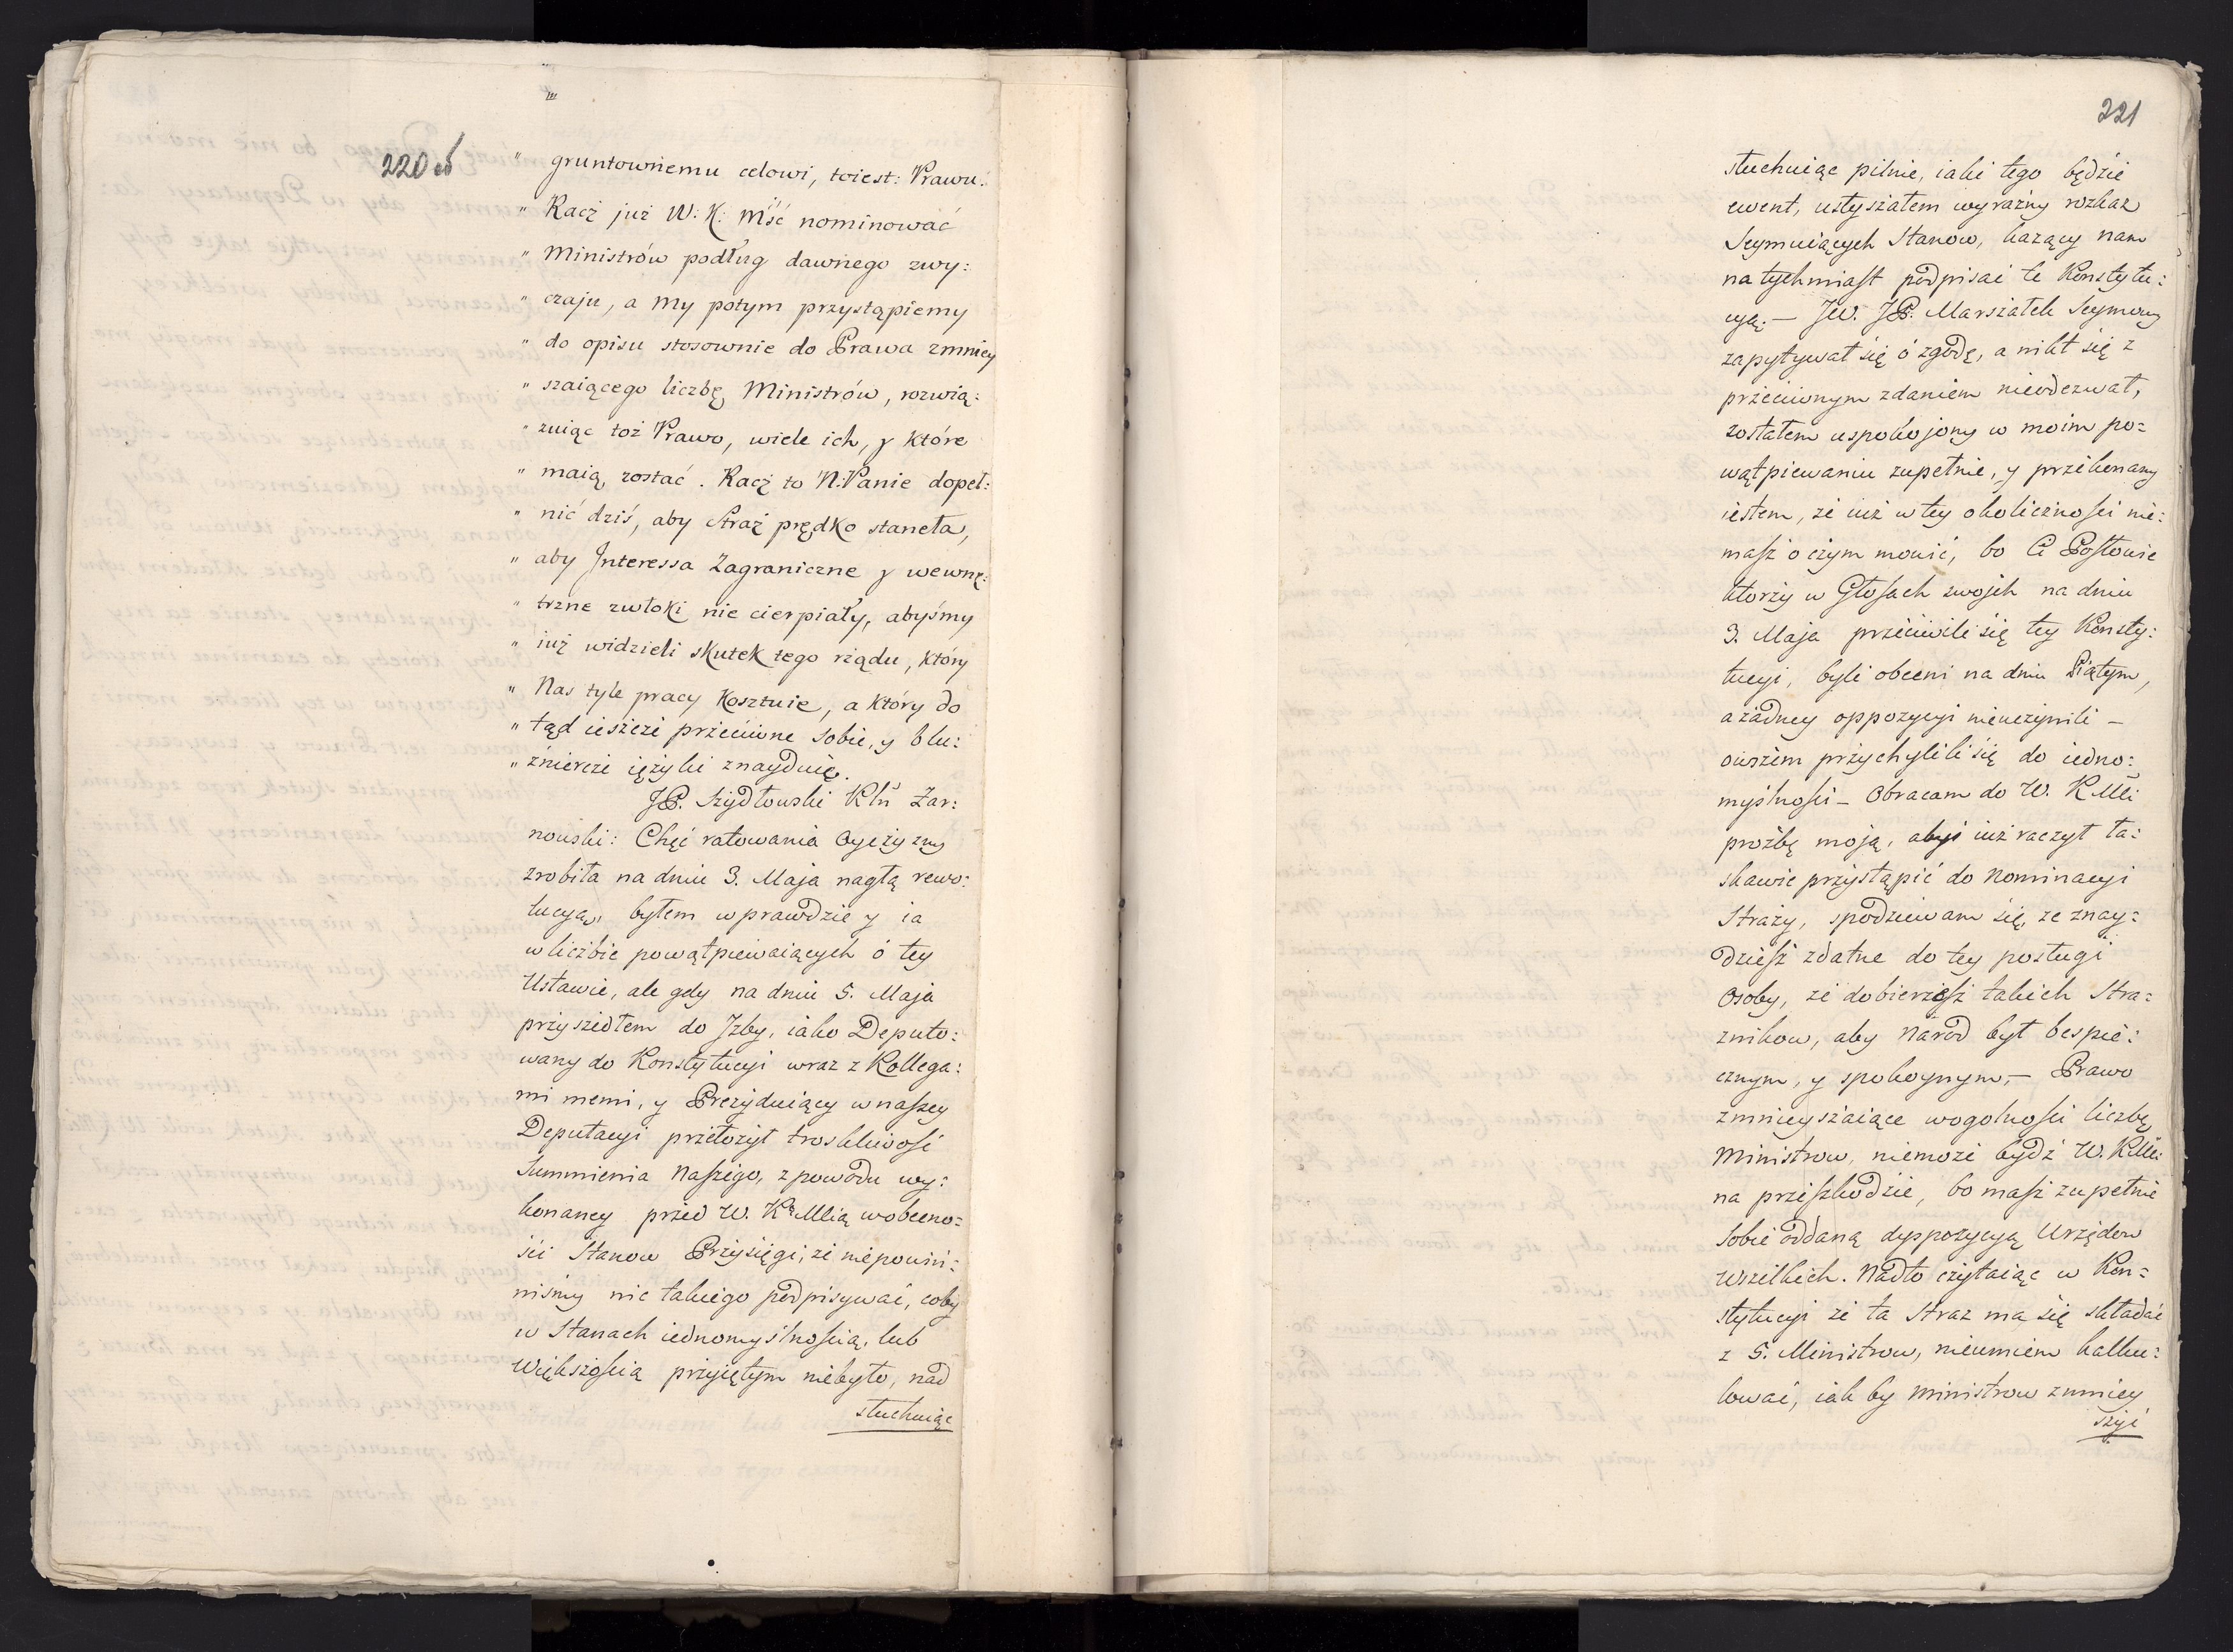 220 об
" gruntownemu celowi, toiest: Prawu.
" Racż już W: K: Mść nominować
" Ministrów podług dawnego zwy:
" czaju, a My potym przystąpiemy
" do opisu stosownie do Prawa zmniey
" szaiącego liczbę Ministrów, rozwią:
" zuiąc toż Prawo, wiele ich, y które
" maią zostać. Racż to N: Panie dopeł:
" nić dziś, aby Straż prędko staneła,
" aby Interessa Zagraniczne y wewnę:
" trzne zwłoki nie cierpiały, abyśmy
" iuż widzieli skutek tego rządu, który
" Nas tyle pracy Kosztuie, a który do
" tąd ieszcze przeciwne sobie, y blu:
" źniercze ięzyki znayduię.
JP. Szydłowski Kłn Żar:
nowski: Chęć ratowania Oyczyzny
zrobiła na dniu 3. Maja nagłą rewo:
lucyą, byłem wprawdzie y ia
w liczbie powątpiewaiących ó tey
Ustawie, ale gdy na dniu 5. Maja
przyszedłem do Jzby, iako Deputo:
wany do Konstytucyi wraz z Kollega:
mi memi, y Prezyduiący w naszey
Deputacyi przełożył troskliwość
Summienia Naszego, z powodu wy:
konaney przed W. K. Mcią w obecno:
ści Stanow Przysięgi, że niepowin:
niśmy nic takiego podpisywać, coby
w Stanach iednomyślnością, lub
Większością przyiętym niebyło, nad
słuchuiąc
221
słuchuiąc pilnie, iaki tego będzie
ewent, usłyszałem wyrażny rozkaz
Seymuiących Stanow, każący nam
natychmiast podpisać te Konstytu:
cyą: — JW. JP. Marszałek Seymowy
zapytywał się ó zgodę, a nikt się z
przeciwnym zdaniem nieodezwał,
zostałem uspokojony w moim po=
wątpiewaniu zupełnie, y przekonany
iestem, że iuż w tey okoliczności nie:
masz o czym mowić, bo Ci Posłowie
ktorzy w Głosach swojch na dniu
3. Maja przeciwili się tey Konsty:
tucyi, byli obecni na dniu Piątym,
a żadney oppozycyi nieuczynili —
owszem przychylili się do iedno:
myślności — Obracam do W. K Mci
proźbę moją, abyś iuż raczył ła:
skawie przystąpić do Nominacyi
Straży, spodziewam się, że znay:
dziesz zdatne do tey posługi
Osoby, że dobierzesz takich Stra=
żnikow, aby Narod był bespie:
cznym, y spokoynym, — Prawo
zmnieyszaiące wogolności liczbę
Ministrow, niemoże bydź W. K Mci
na przeszkodzie, bo masz zupełnie
sobie oddaną dyspozycyą Urzędow
wszelkich. Nadto czytaiąc w Kon=
stytucyi że ta Straż ma się składać
z 5. Ministrow, nieumiem kalku:
lować, iak by Ministrow zmniey
szyć